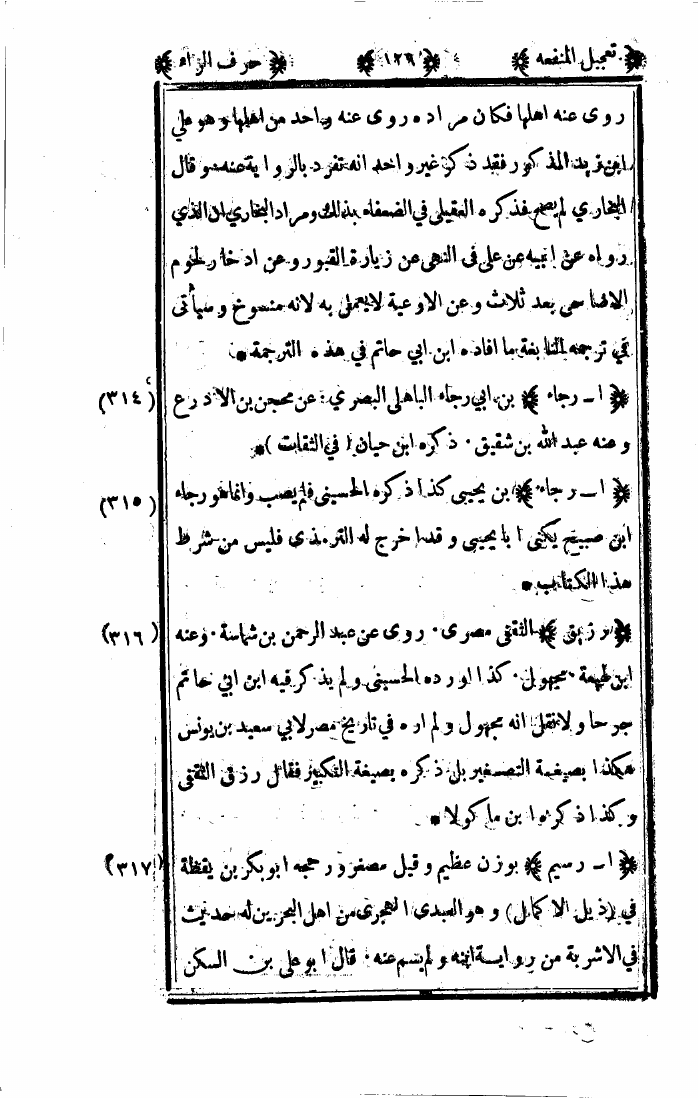 تعجيل المنفعه ﴿١٢٦﴾ حرف الراء
روى عنه اهلها فكان مراده روى عنه واحد من اهلها وهو علي
ابن زيد المذكور فقد ذكر غير واحد انه تفرد بالرواية عنه وقال
البخاري لم يصح فذكره العقيلي في الضعفاء بذلك ومراد البخاري ان الذي
رواه عن ابيه عن على فى النهى عن زيارة القبور وعن ادخار لحوم
الاضاحى بعد ثلاث وعن الاوعية لايعمل به لانه منسوخ وسيأتى
في ترجمه النابغة ما افاده ابن ابي حاتم في هذه الترجمة *
﴿ ا ـ رجاء ﴾ بن ابي رجاء الباهلى البصري عن محجن بن الادرع (٣١٤)
وعنه عبد الله بن شقيق . ذكره ابن حبان ( في الثقات ) *
﴿ ا ـ رجاء ﴾ بن يحيى كذا ذكره الحسينى فلم يصب وانما هو رجاء (٣١٥)
ابن صبيح يكنى ابا يحيى وقد اخرج له الترمذى فليس من شرط
هذا الكتاب *
﴿ رزيق ﴾ الثقفى مصرى . روى عن عبد الرحمن بن شماسة . وعنه (٣١٦)
ابن لهيعة . مجهول . كذا اورده الحسينى ولم يذكر فيه ابن ابي حاتم
جرحا ولا نقل انه مجهول ولم اره في تاريخ مصر لابي سعيد بن يونس
هكذا بصيغة التصغير بل ذكره بصيغة التكبير فقال رزق الثقفى
وكذا ذكره ابن ماكولا *
﴿ ا ـ رسيم ﴾ بوزن عظيم وقيل مصغر ورجحه ابو بكر بن نقطة (٣١٧)
في (ذيل الاكمال) وهو العبدى الهجرى من اهل البحرين له حديث
في الاشربة من رواية ابنه ولم يسم عنه . قال ابو على بن السكن